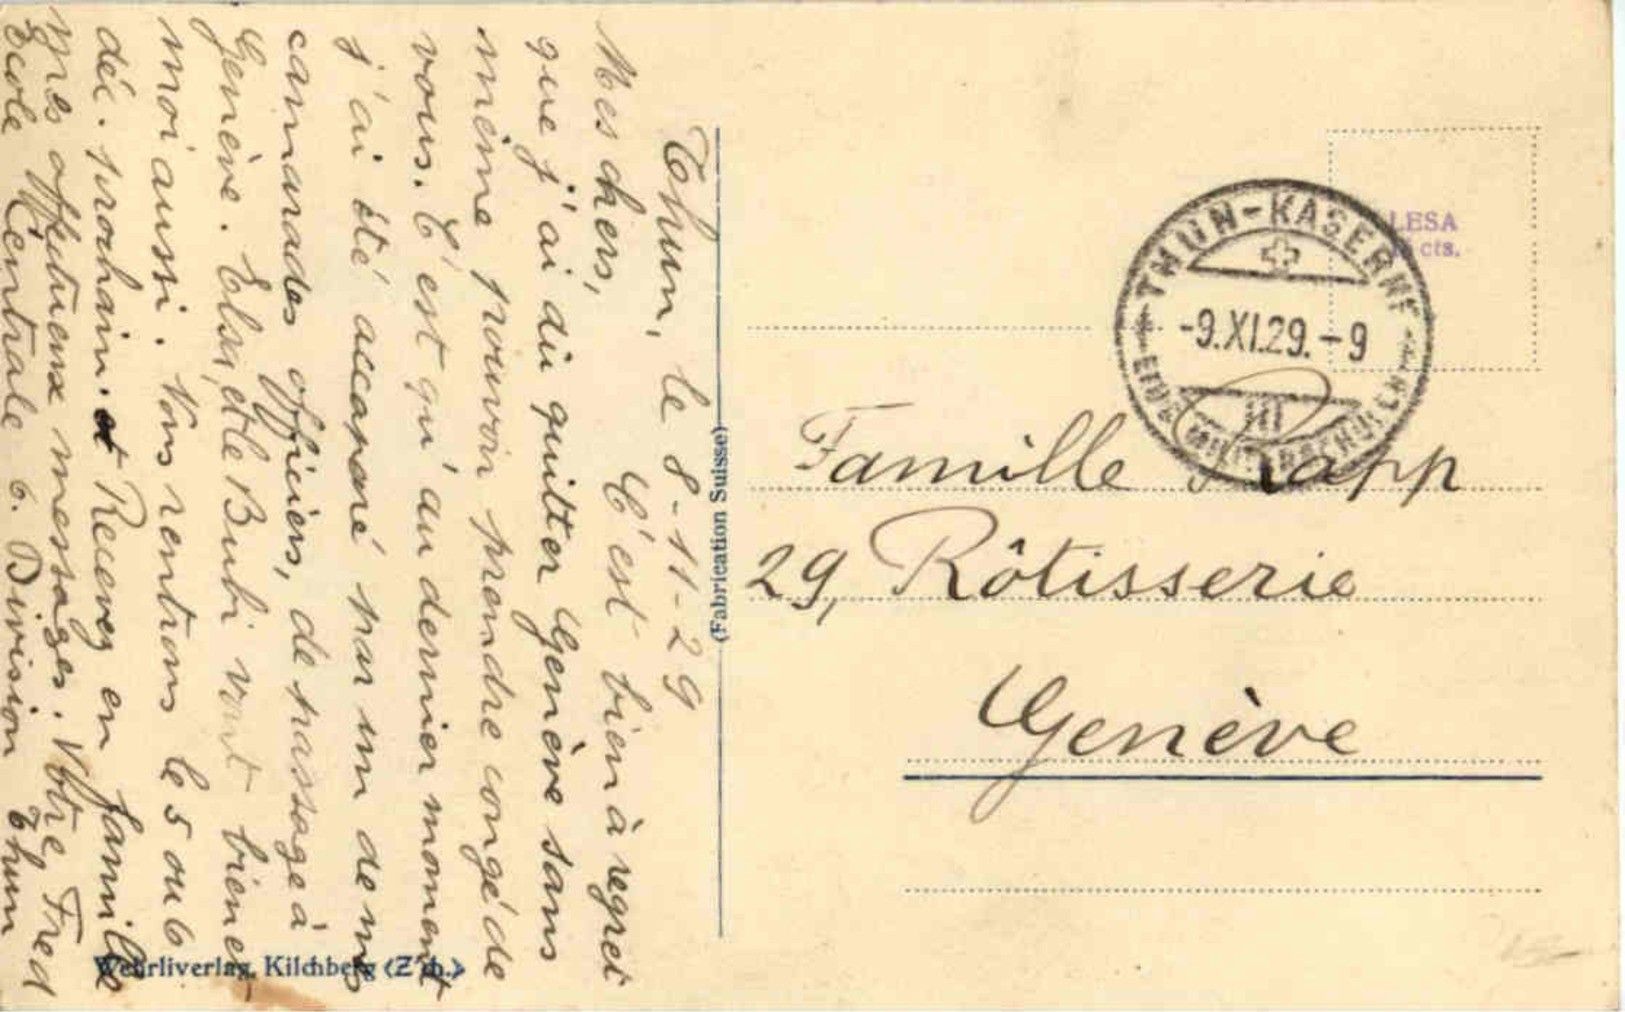 Thun, le 8-11-29
Mes chers,
C'est bien à regret
que j'ai dû quitter Genève sans
même pouvoir prendre congé de
vous. C'est qu'au dernier moment
j'ai été accaparé par un de mes
camarades officiers, de passage à
Genève. Elsa, et le Bubi vont bien et
moi aussi. Nous rentrons le 5 ou 6
déc. prochain. et Recevez en famille
mes affectueux messages. Vôtre, Fred
Ecole Centrale 6. Division Thun
(Fabrication Suisse)
Wehrliverlag, Kilchberg (Z'ch.)
LESA
cts.
THUN-KASERNE
-9.XI.29.-9
III
Famille Rapp
29, Rôtisserie
Genève